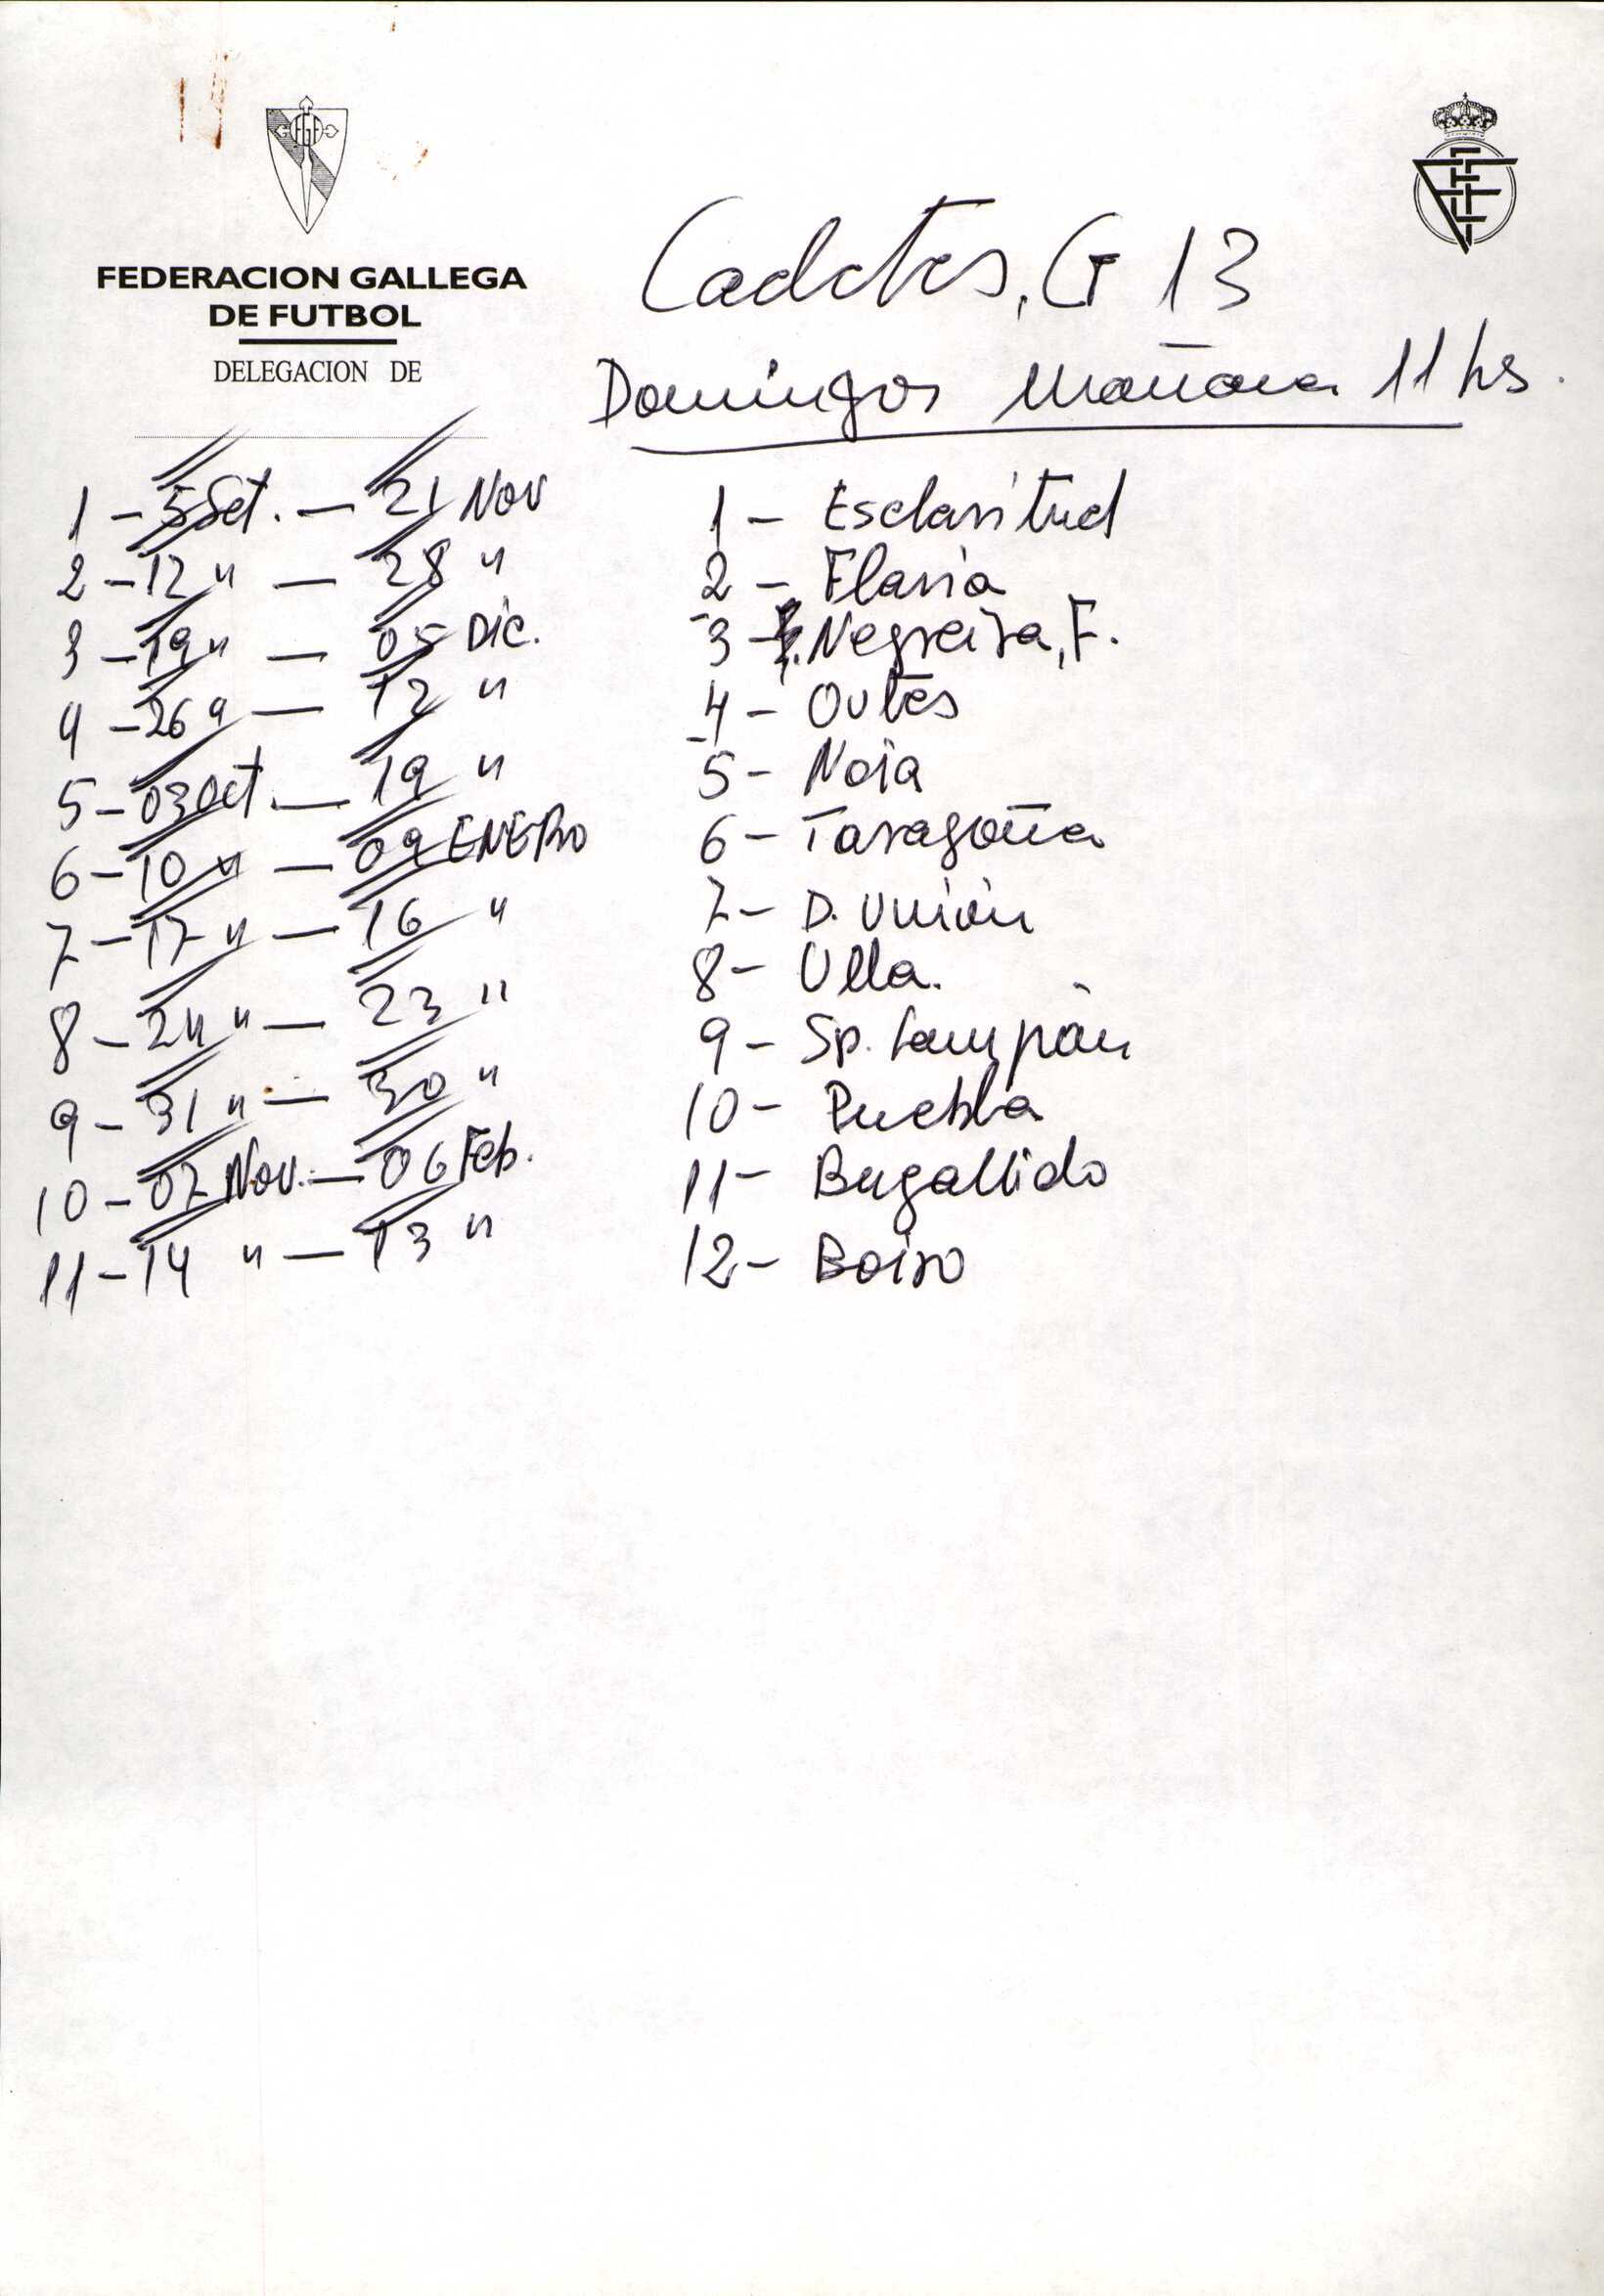 FEDERACION GALLEGA
DE FUTBOL
DELEGACION DE
Cadetes, G 13
Domingos mañana 11 hs.
1 - 5 Set. — 21 Nov
2 - 12 " — 28 "
3 - 19 " — 05 Dic.
4 - 26 " — 12 "
5 - 03 Oct. — 19 "
6 - 10 " — 09 ENERO
7 - 17 " — 16 "
8 - 24 " — 23 "
9 - 31 " — 30 "
10 - 07 Nov. — 06 Feb.
11 - 14 " — 13 "
1 - Esclavitud
2 - Flavia
3 - Negreira, F.
4 - Outes
5 - Noia
6 - Taragoña
7 - D. Unión
8 - Ulla.
9 - Sp. Lampón
10 - Puebla
11 - Bugallido
12 - Boiro